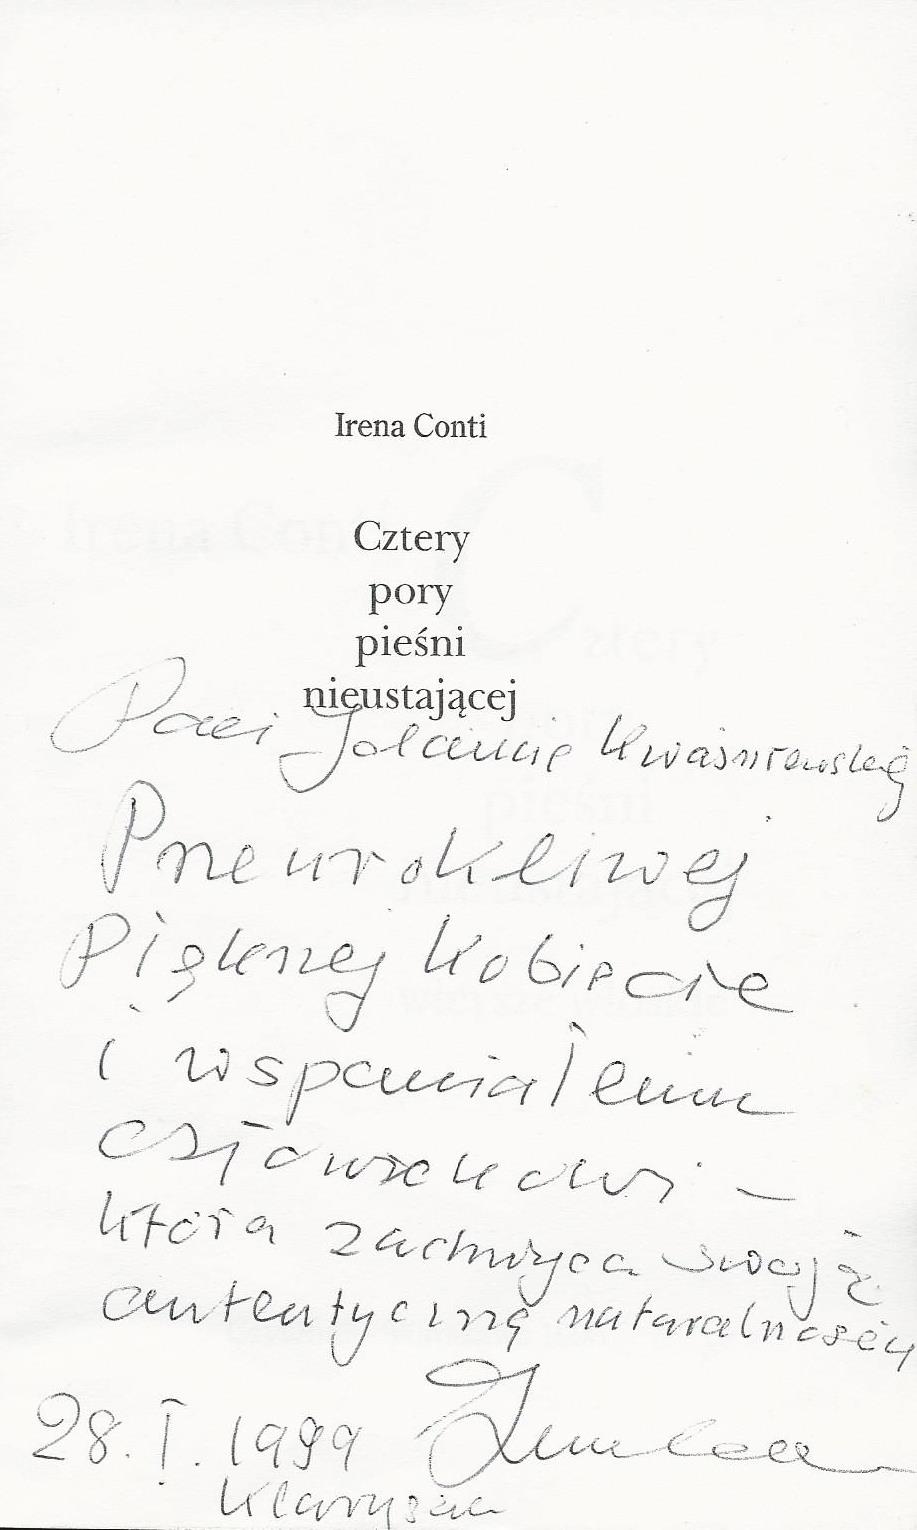 Irena Conti
Cztery
pory
pieśni
nieustającej
Pani Jolancie Kwaśniewskiej
Przeurokliwej
Pięknej Kobiecie
i wspaniałemu
człowiekowi –
która zachwyca swoją
autentyczną naturalnością
28.I.1999
Klarysew